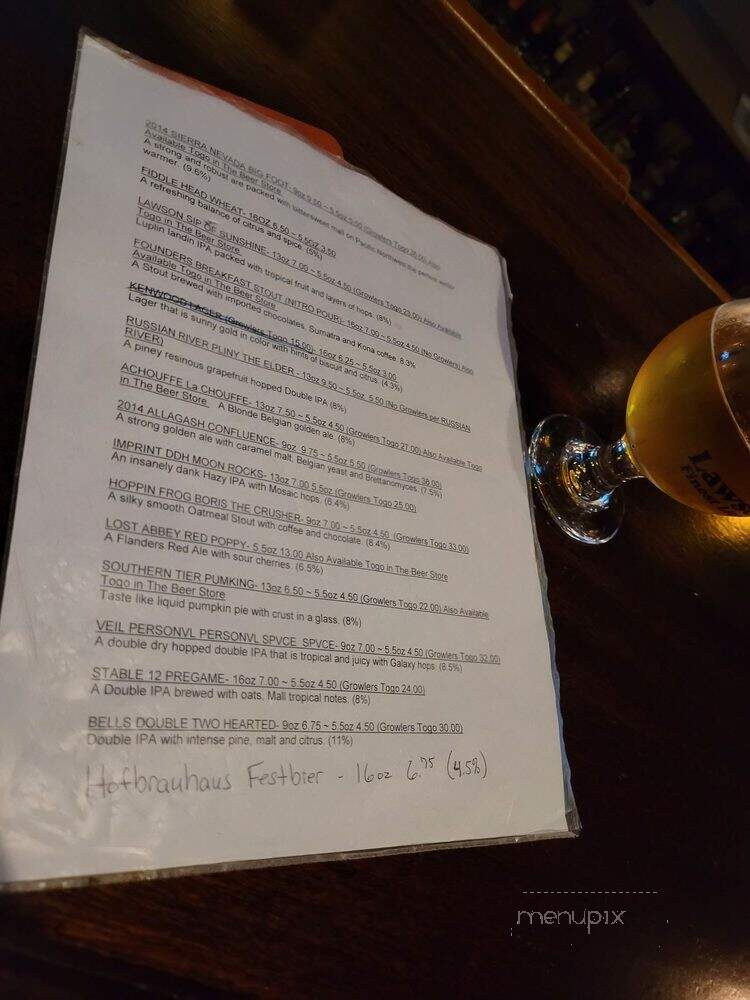 2014 SIERRA NEVADA BIG FOOT- 9oz 9.00 ~ 5.5oz 5.50 (Growlers Togo 36.00) Also
Available Togo in The Beer Store
A strong and robust are packed with bittersweet malt on Pacific Northwest the perfect winter
warmer. (9.6%)
FIDDLE HEAD WHEAT- 16OZ 6.50 ~ 5.5OZ 3.50
A refreshing balance of citrus and spice. (5%)
LAWSON SIP OF SUNSHINE- 13oz 7.00 ~ 5.5oz 4.50 (Growlers Togo 23.00) Also Available
Togo in The Beer Store
Luplin landin IPA packed with tropical fruit and layers of hops. (8%)
FOUNDERS BREAKFAST STOUT (NITRO POUR)- 16oz 7.00 ~ 5.5oz 4.50 (No Growlers) Also
Available Togo in The Beer Store
A Stout brewed with imported chocolates, Sumatra and Kona coffee. 8.3%
KENWOOD LAGER (Growlers Togo 15.00)- 16oz 6.25 ~ 5.5oz 3.00
Lager that is sunny gold in color with hints of biscuit and citrus. (4.3%)
RUSSIAN RIVER PLINY THE ELDER - 13oz 9.50 ~ 5.5oz 5.50 (No Growlers per RUSSIAN
RIVER)
A piney resinous grapefruit hopped Double IPA (8%)
ACHOUFFE La CHOUFFE- 13oz 7.50 ~ 5.5oz 4.50 (Growlers Togo 27.00) Also Available Togo
in The Beer Store A Blonde Belgian golden ale. (8%)
2014 ALLAGASH CONFLUENCE- 9oz 9.75 ~ 5.5oz 5.50 (Growlers Togo 38.00)
A strong golden ale with caramel malt, Belgian yeast and Brettanomyces. (7.5%)
IMPRINT DDH MOON ROCKS- 13oz 7.00 5.5oz (Growlers Togo 25.00)
An insanely dank Hazy IPA with Mosaic hops. (6.4%)
HOPPIN FROG BORIS THE CRUSHER- 9oz 7.00 ~ 5.5oz 4.50 (Growlers Togo 33.00)
A silky smooth Oatmeal Stout with coffee and chocolate. (8.4%)
LOST ABBEY RED POPPY- 5.5oz 13.00 Also Available Togo in The Beer Store
A Flanders Red Ale with sour cherries. (6.5%)
SOUTHERN TIER PUMKING- 13oz 6.50 ~ 5.5oz 4.50 (Growlers Togo 22.00) Also Available
Togo in The Beer Store
Taste like liquid pumpkin pie with crust in a glass. (8%)
VEIL PERSONVL PERSONVL SPVCE SPVCE- 9oz 7.00 ~ 5.5oz 4.50 (Growlers Togo 32.00)
A double dry hopped double IPA that is tropical and juicy with Galaxy hops. (8.5%)
STABLE 12 PREGAME- 16oz 7.00 ~ 5.5oz 4.50 (Growlers Togo 24.00)
A Double IPA brewed with oats. Mall tropical notes. (8%)
BELLS DOUBLE TWO HEARTED- 9oz 6.75 ~ 5.5oz 4.50 (Growlers Togo 30.00)
Double IPA with intense pine, malt and citrus. (11%)
Hofbrauhaus Festbier - 16oz 6.75 (4.5%)
Laws
Finest
menupix